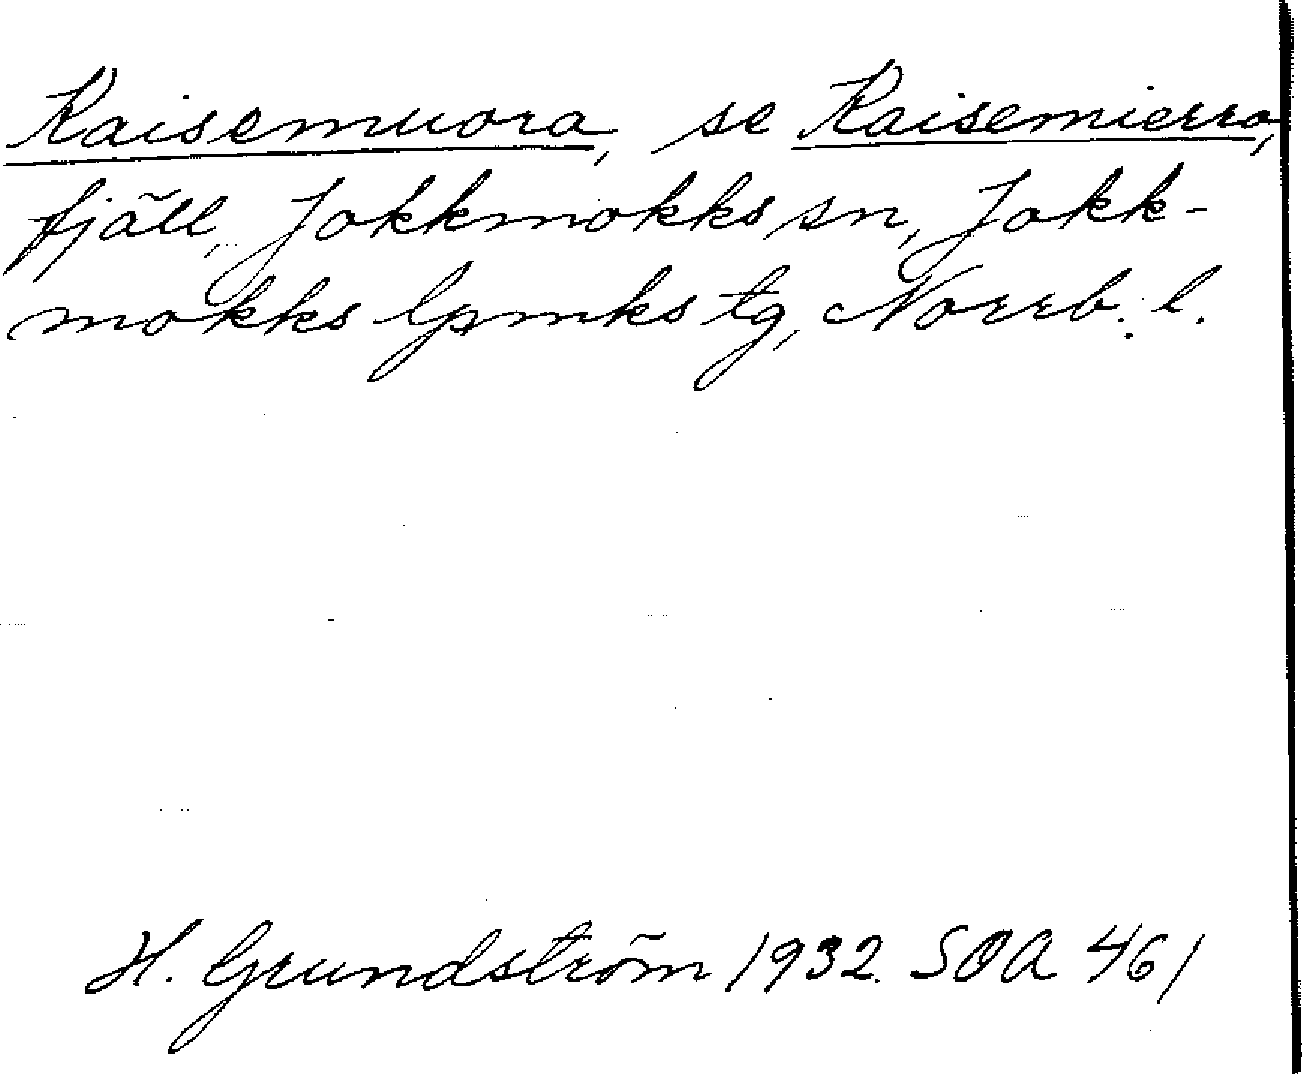 Kaisemuora, se Kaisemierro,
fjäll, Jokkmokks sn, Jokk-
mokks lpmks tg, Norrb. l.
H. Grundström 1932. SOA 461